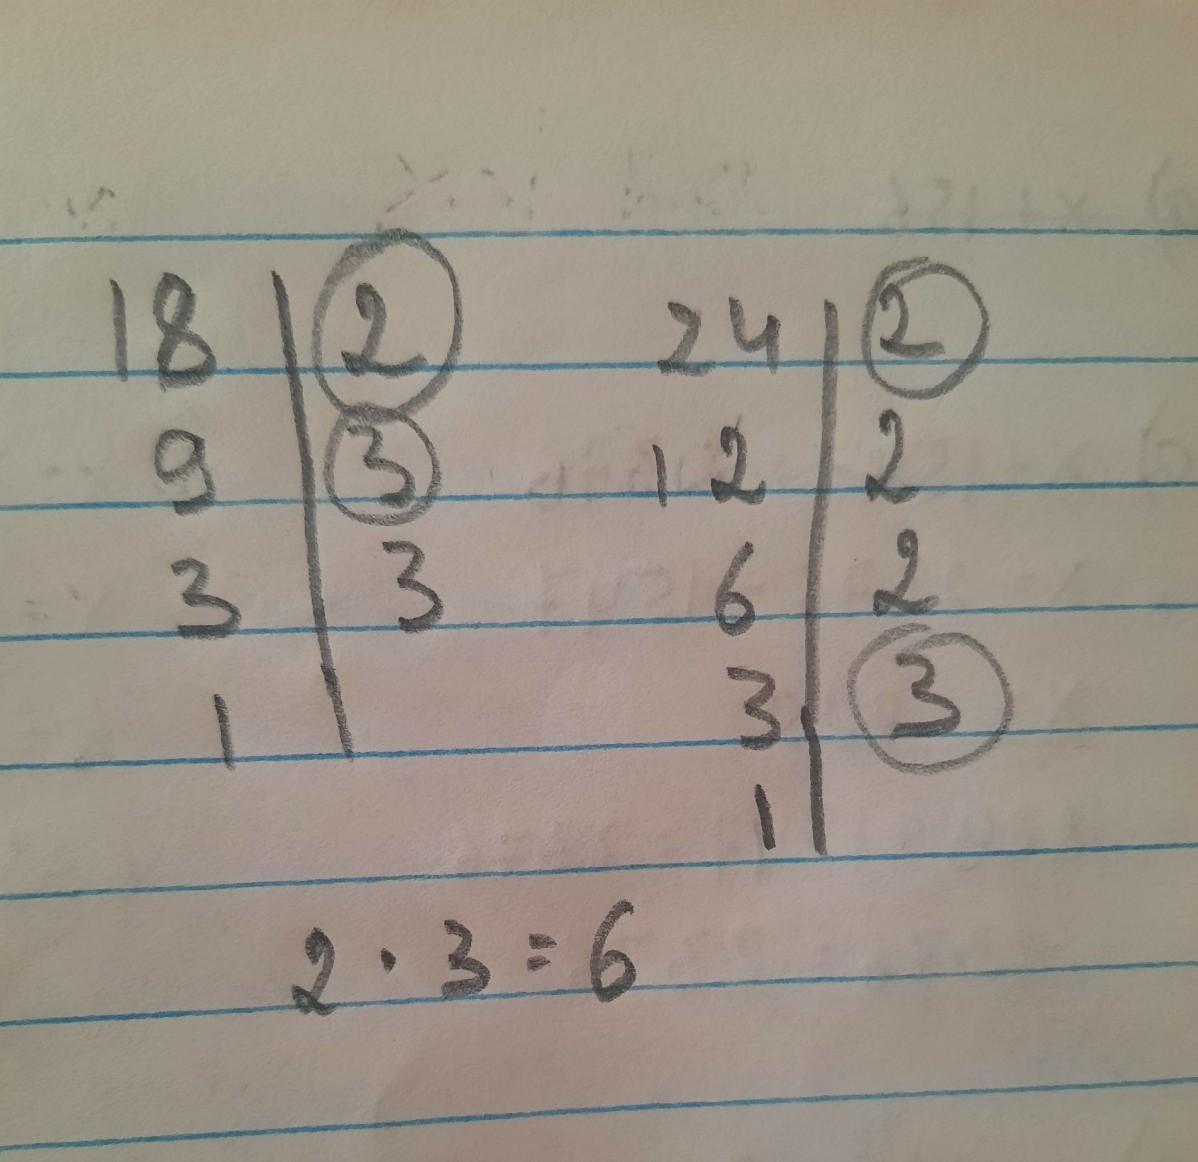 18 | 2 24 | 2
9 | 3 12 | 2
3 | 3 6 | 2
1 | 3 | 3
1 |
2 · 3 = 6